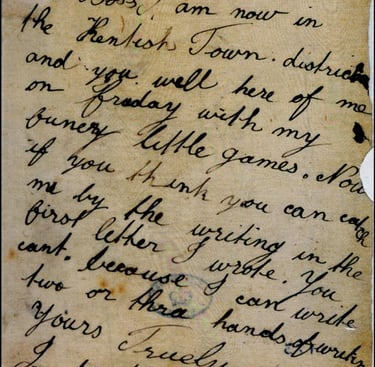 Boss, I am now in
the Kentish Town. district
and you. well here of me
on fraday with my
funery little games. Now
if you think you can catch
me by the writing in the
first letter I wrote. You
cant. because I can write
two or thra hands of writin
Yours Truely
J